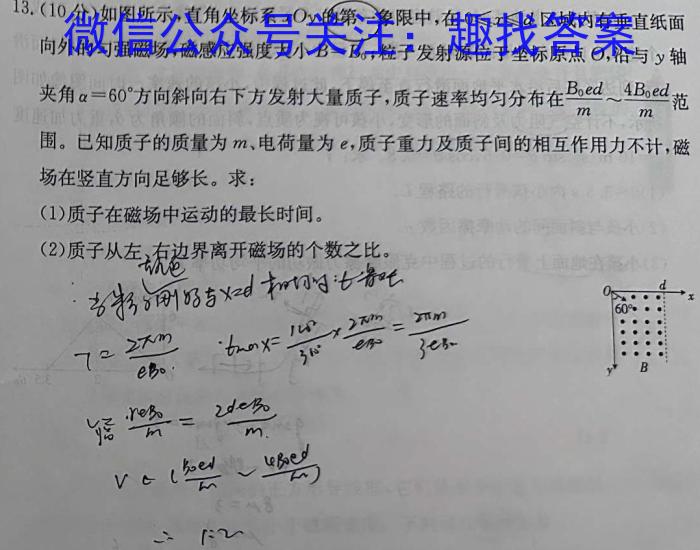 13.(10分)如图所示,直角坐标系 xOy的第一象限中,在0≤x≤d区域内有垂直纸面
微信公众号关注:趣找答案
向外的匀强磁场,磁感应强度大小B=B₀,粒子发射源位于坐标原点O,沿与y轴
夹角α=60°方向斜向右下方发射大量质子,质子速率均匀分布在B₀ed/m～4B₀ed/m范
围。已知质子的质量为m、电荷量为e,质子重力及质子间的相互作用力不计,磁
场在竖直方向足够长。求:
(1)质子在磁场中运动的最长时间。
(2)质子从左、右边界离开磁场的个数之比。
与x=d相切时t最长
T=2πm/eB₀. tmax=120°/360°×2πm/eB₀=2πm/3eB₀
reB₀/m=2deB₀/m.
V∈(B₀ed/m～4B₀ed/m)
∴ 1:2
O d x
60°
y B